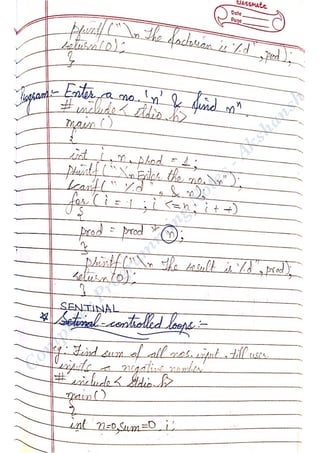 classmate
Date
Page
printf("\n The factorian is %d", prod);
return(0);
}
Program:- Enter a no. 'n' & find nⁿ.
# include < stdio.h>
main()
{
int i, n, prod = 1;
printf("\n Enter the no. \n");
scanf(" %d", & n);
for (i = 1 ; i <= n; i++)
{
prod = prod * n;
}
printf("\n The result is %d", prod);
return(0);
}
SENTINAL
* Setinal-controlled loops:-
g: Find sum of all nos. input, till user
inputs a negative number
# include < stdio.h>
main()
{
int n=0, sum=0, i;